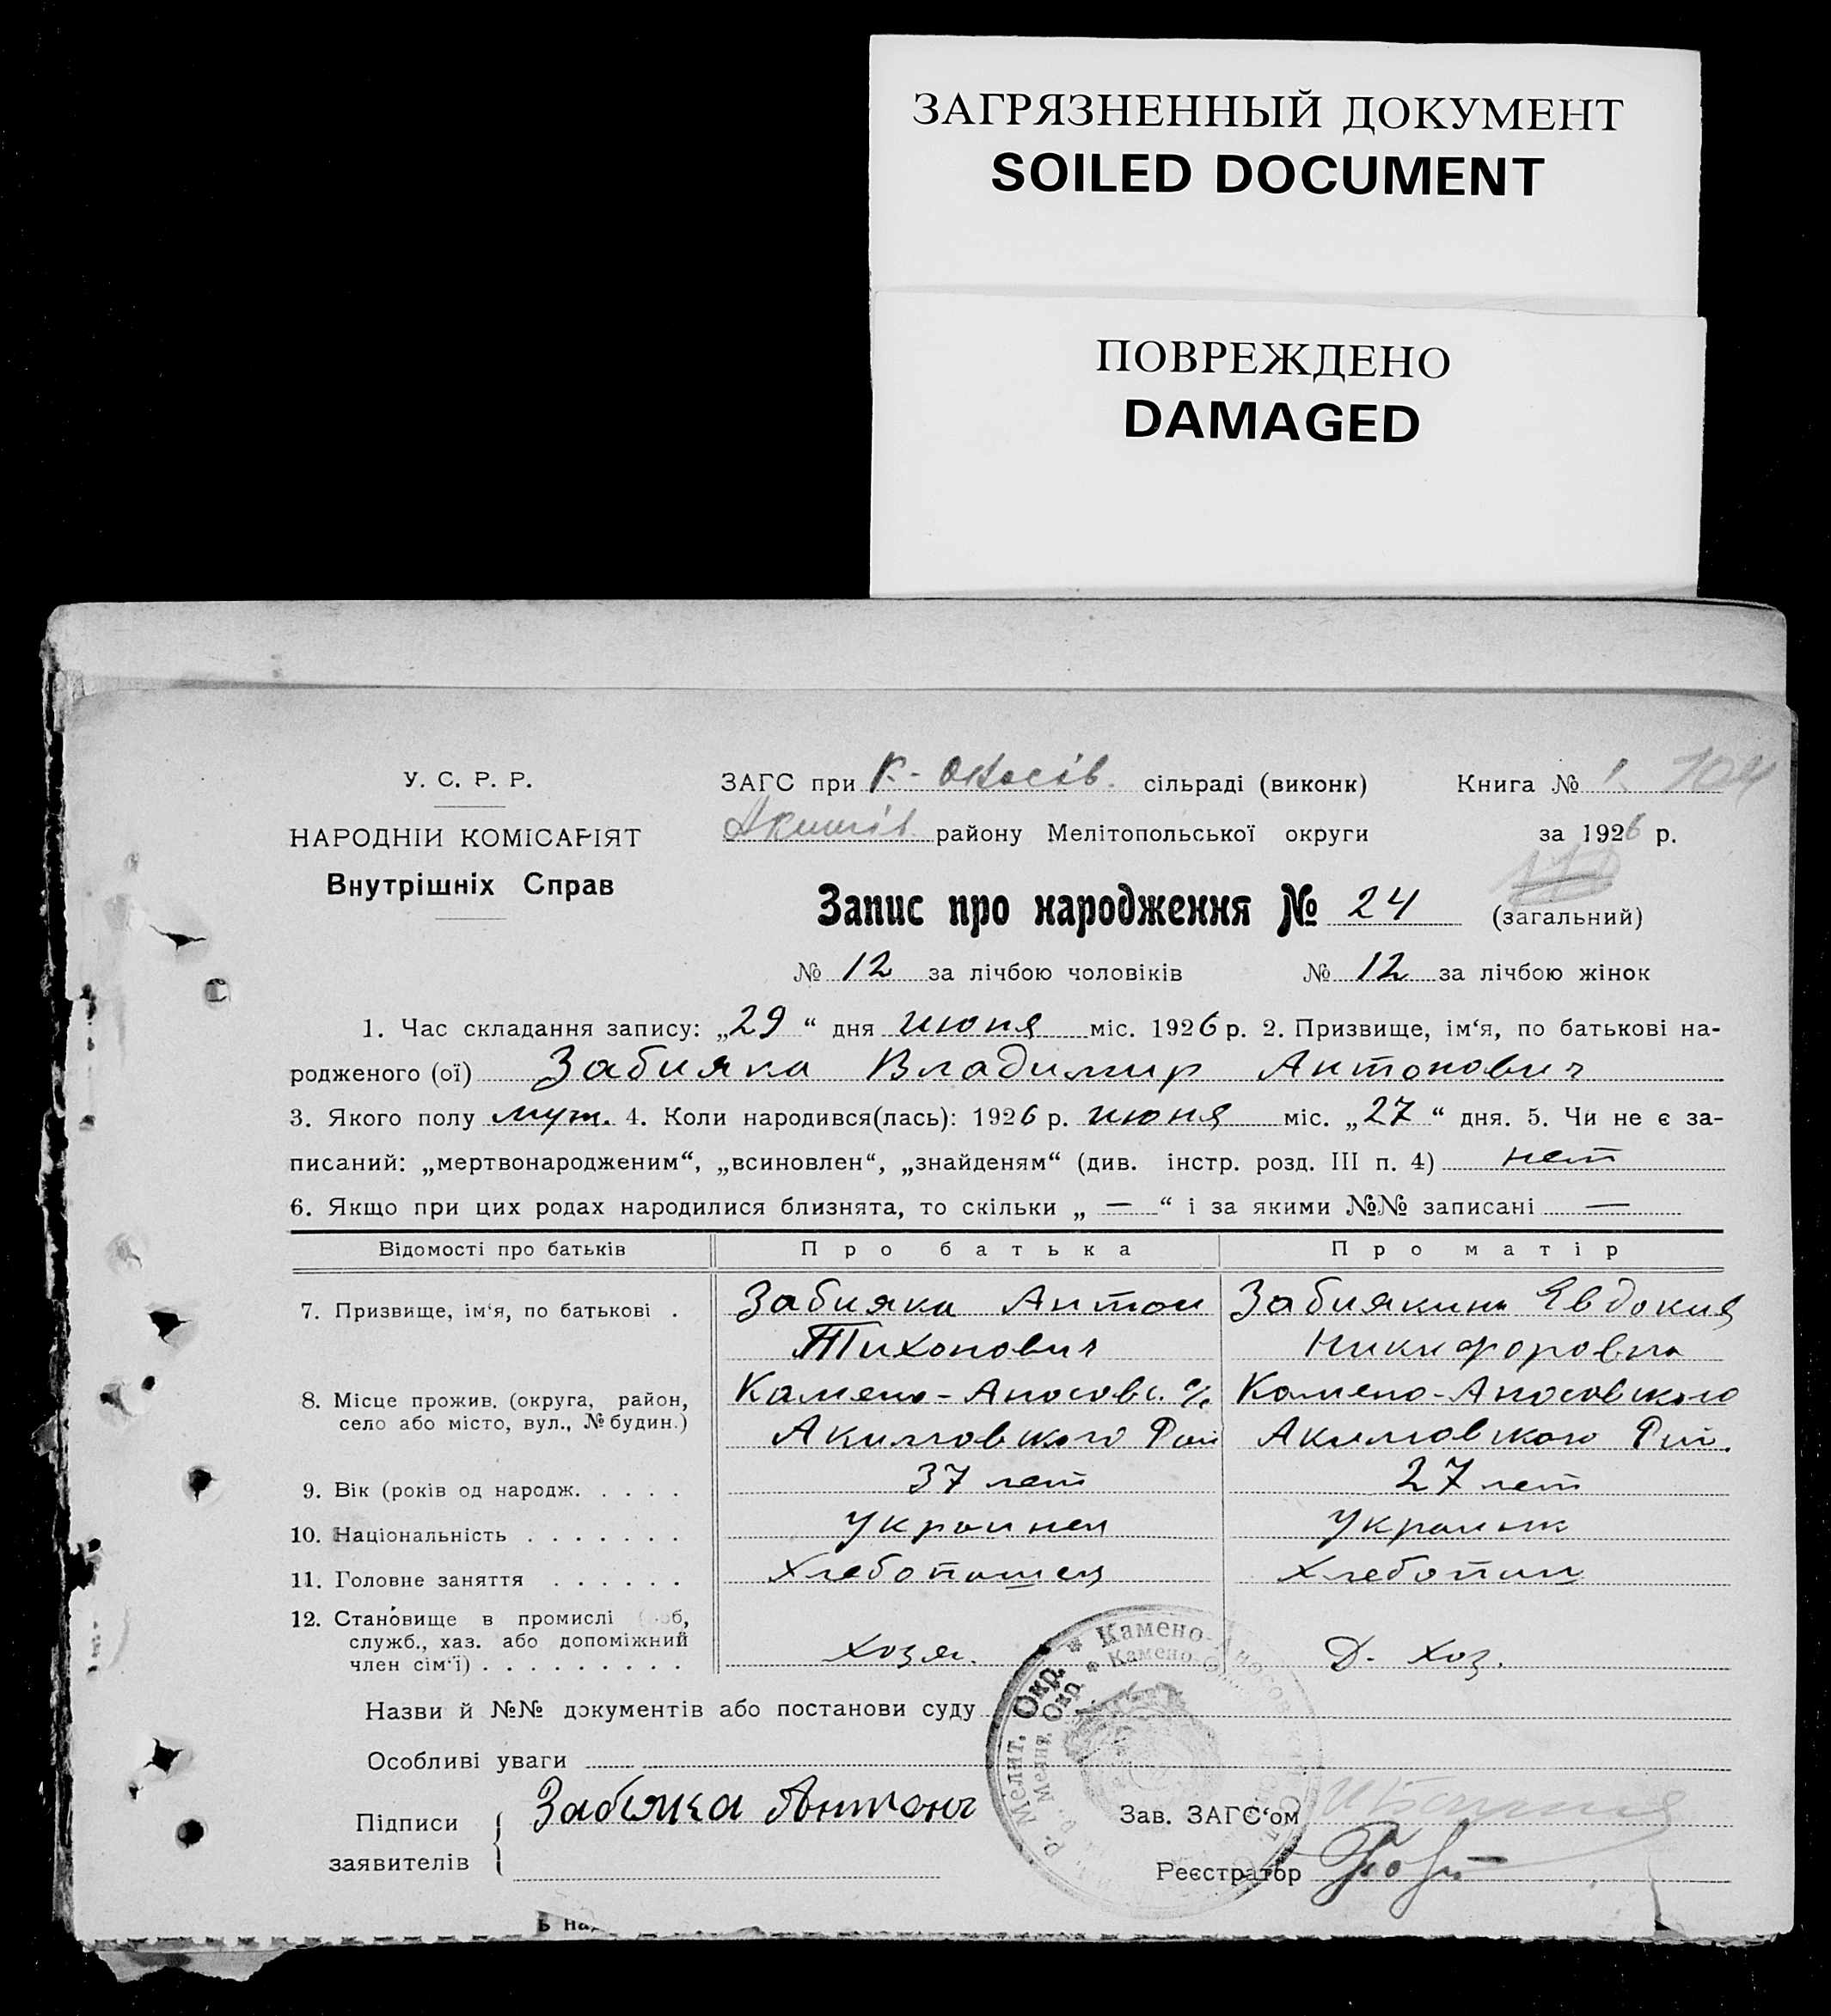 ЗАГРЯЗНЕННЫЙ ДОКУМЕНТ
SOILED DOCUMENT
ПОВРЕЖДЕНО
DAMAGED
У. С. Р. Р.
НАРОДНІЙ КОМІСАРІЯТ
Внутрішніх Справ
ЗАГС при К.- сільраді (виконк) Книга № 1 104
Акимів району Мелітопольської округи за 1926 р.
Запис про народження № 24 (загальний)
№ 12 за лічбою чоловіків № 12 за лічбою жінок
1. Час складання запису: „29“ дня июня міс. 1926 р. 2. Призвище, ім‘я, по батькові на-
родженого (ої) Забияка Владимир Антонович
3. Якого полу муж. 4. Коли народився(лась): 1926 р. июня міс. „27“ дня. 5. Чи не є за-
писаний: „мертвонародженим“, „всиновлен“, „знайденям“ (див. інстр. розд. III п. 4) нет
6. Якщо при цих родах народилися близнята, то скільки „ — “ і за якими №№ записані —
Відомості про батьків Про батька Про матір
7. Призвище, ім‘я, по батькові . Забияка Антон Забиякина Евдокия
Тихонович Никифоровна
8. Місце прожив. (округа, район, село або місто, вул., № будин.) Камено-Аносовс. с/с Камено-Аносовского
Акимовского Рай Акимовского Рай.
9. Вік (років од народж. . . . . 37 лет 27 лет
10. Національність . . . . . . . Украинец Украинк
11. Головне заняття . . . . . . Хлебопашец Хлебопаш
12. Становище в промислі роб,
служб., хаз. або допоміжний
член сім‘ї) . . . . . . . . . Хозя. Д. Хоз.
Назви й №№ документів або постанови суду
Особливі уваги
Підписи
заявителів
Забіяка Антонъ
Зав. ЗАГС‘ом
Реєстратор
Р. Мелит. Окр. * Камено-Аносов
Мелит. Окр. * Камено-О
ь на